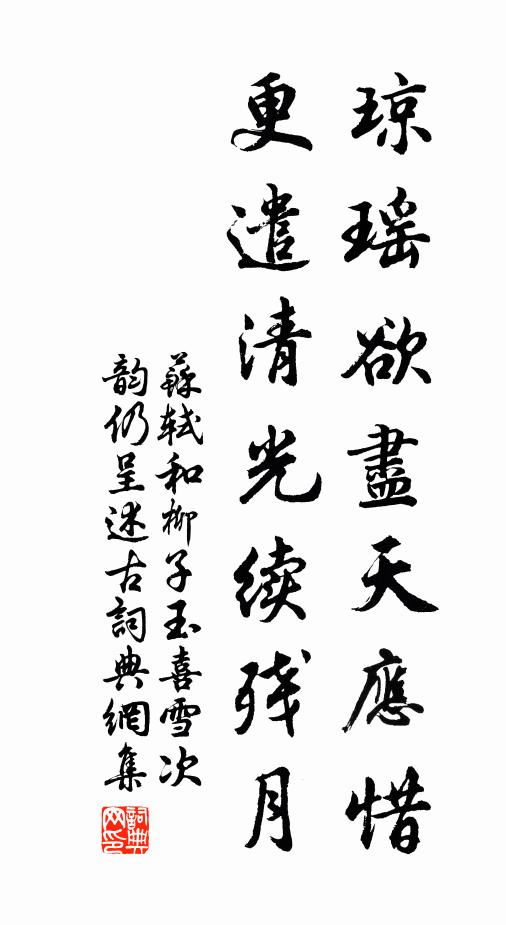 琼瑶欲盡天應惜
更遣清光续残月
蘇轼和柳子玉喜雪次
韵仍呈述古詞典網集
詞典网印